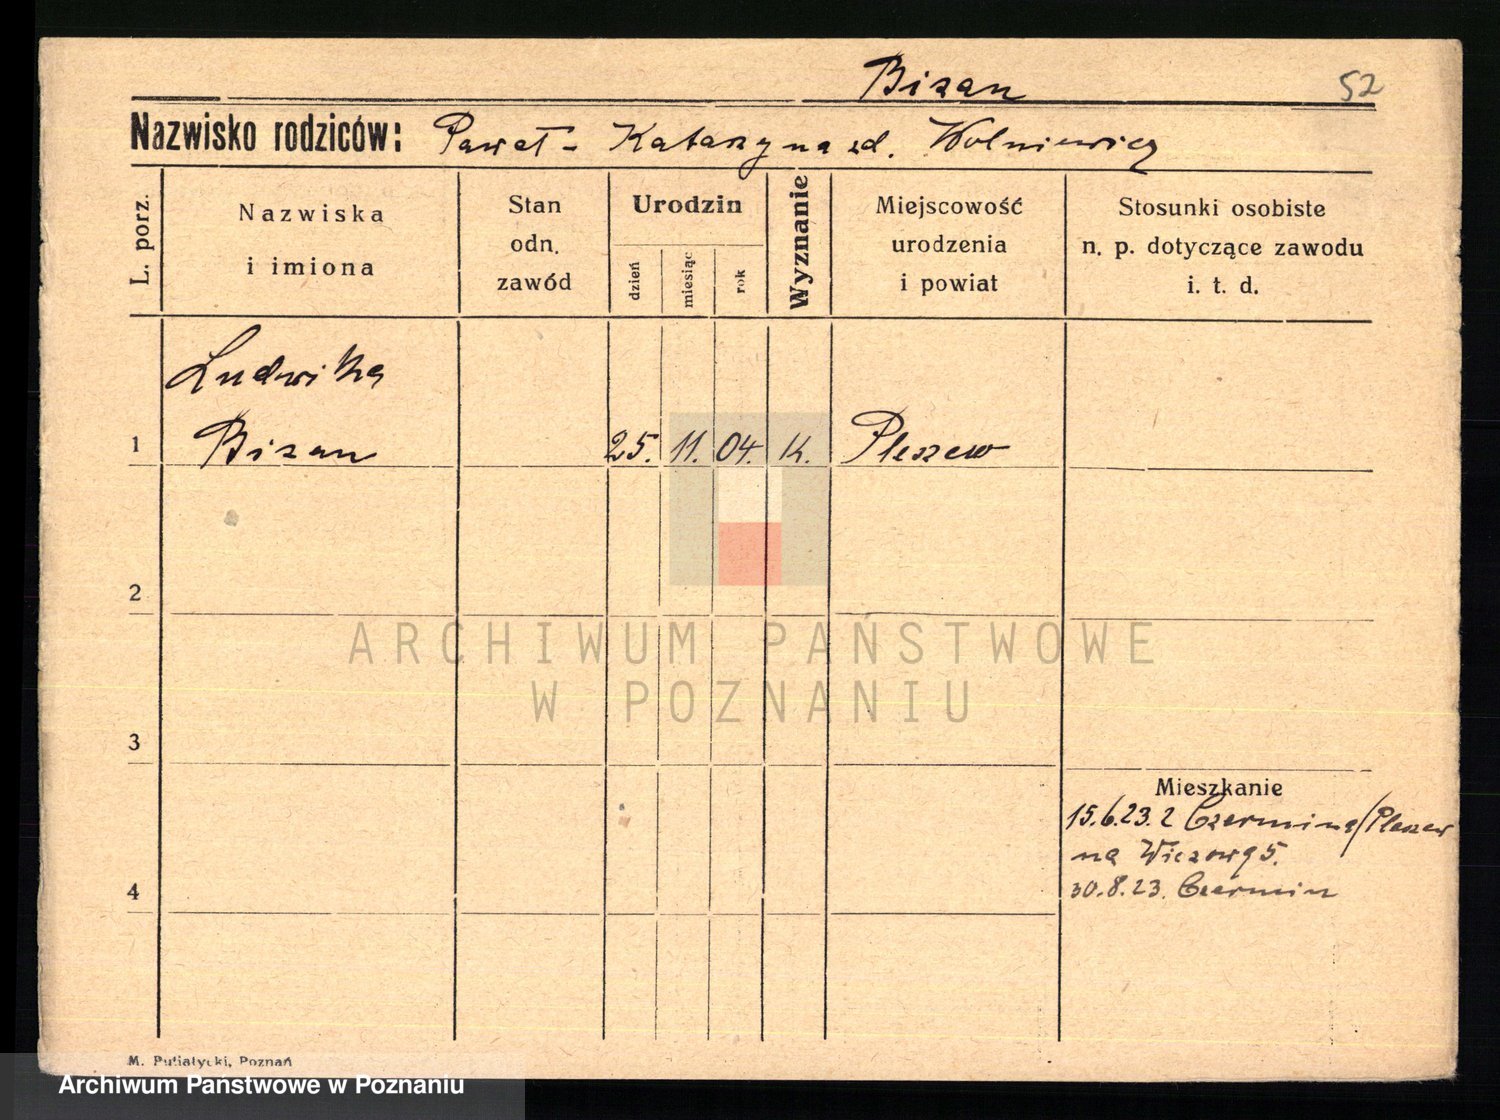 Bizan
52
Nazwisko rodziców: Paweł - Katarzyna zd. Wolniewicz
L. porz.
Nazwiska
i imiona
Stan
odn.
zawód
Urodzin
dzień
miesiąc
rok
Wyznanie
Miejscowość
urodzenia
i powiat
Stosunki osobiste
n. p. dotyczące zawodu
i. t. d.
Ludwika
1 Bizan 25. 11. 04. K. Pleszew
2
ARCHIWUM PAŃSTWOWE
W POZNANIU
3
Mieszkanie
15.6.23. z Czermina/Pleszew
na 5.
4
30.8.23. Czermin
M. Putiatycki, Poznań
Archiwum Państwowe w Poznaniu